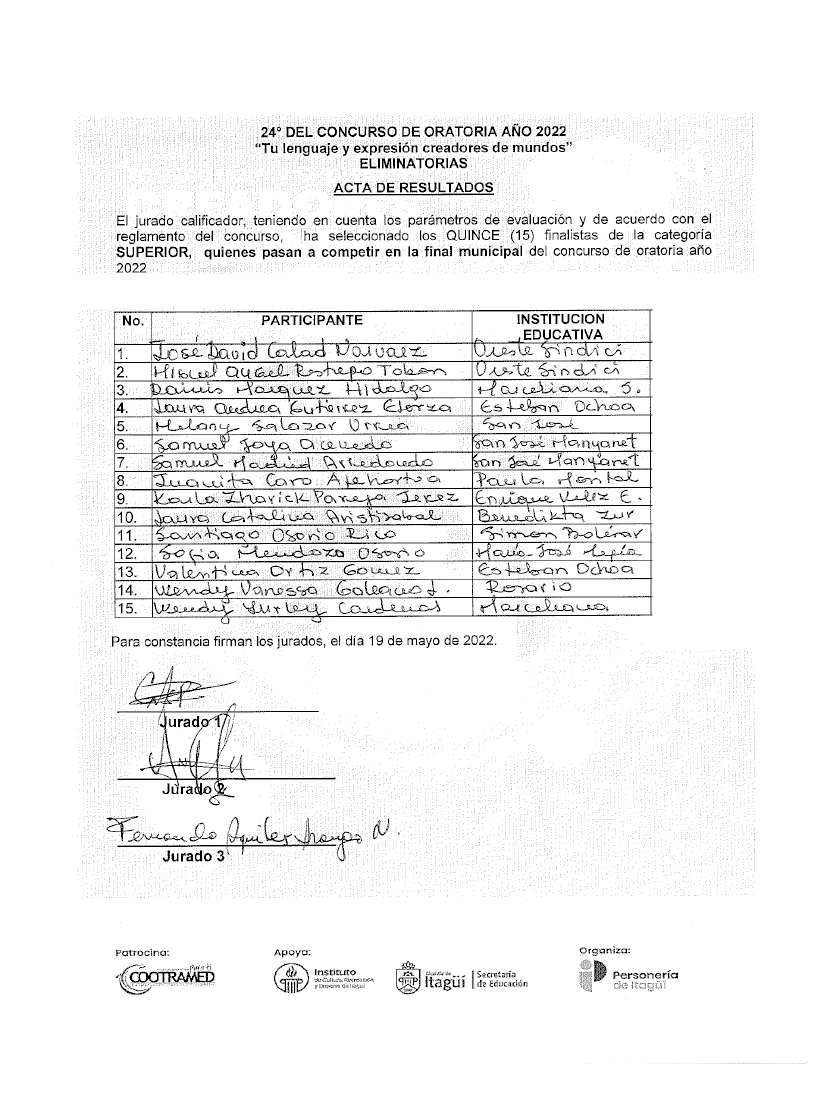 24° DEL CONCURSO DE ORATORIA AÑO 2022
“Tu lenguaje y expresión creadores de mundos”
ELIMINATORIAS
ACTA DE RESULTADOS
El jurado calificador, teniendo en cuenta los parámetros de evaluación y de acuerdo con el
reglamento del concurso, ha seleccionado los QUINCE (15) finalistas de la categoría
SUPERIOR, quienes pasan a competir en la final municipal del concurso de oratoria año
2022
No. PARTICIPANTE INSTITUCION EDUCATIVA
1. José David Calad Narvaez Oreste Sindici
2. Miguel Angel Restrepo Tobon Oreste Sindici
3. Dainis Marquez Hidalgo Marceliana S.
4. Laura Andrea Gutierrez Elorza Esteban Ochoa
5. Melany Salazar Urrea San José
6. Samuel Joya Acevedo San José Manyanet
7. Samuel Madrid Arredondo San José Manyanet
8. Juanita Caro Atehortua Paula Montal
9. Karla Zharick Pareja Jerez Enrique Velez E.
10. Laura Catalina Aristizabal Benedikta Zur
11. Santiago Osorio Rico Simon Bolívar
12. Sofia Mendoza Osorio María José
13. Valentina Ortiz Gomez Esteban Ochoa
14. Wendy Vanessa Galeano L. Rosario
15. Wendy Yurley Cardenas Marceliana
Para constancia firman los jurados, el día 19 de mayo de 2022.
Jurado 1
Jurado 2
Fernando Aguilar Arango N.
Jurado 3
Patrocina: Apoya: Organiza:
COOTRAMED
Instituto
de Cultura, Recreación
y Deporte de Itagüí
Alcaldía de
Itagüí
Secretaría
de Educación
Personería
de Itagüí